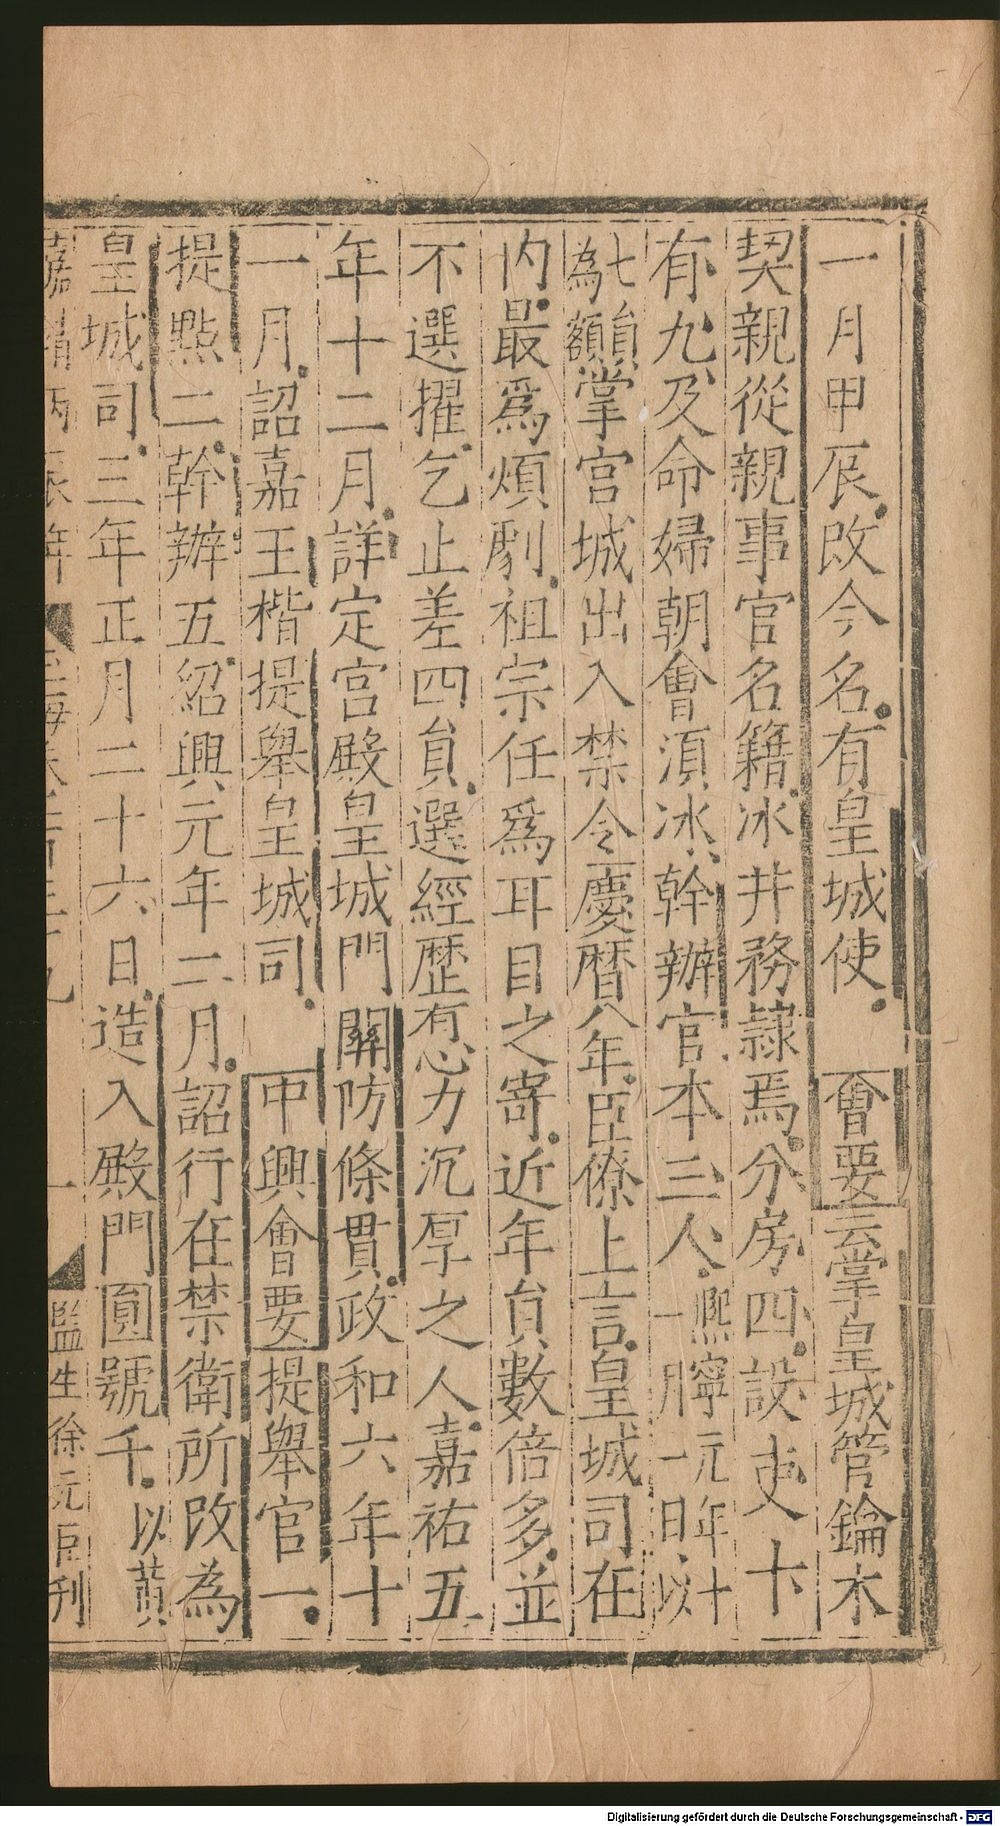 一月甲辰改今名有皇城使 會要云掌皇城管鑰木
契親從親事官名籍冰井務隷焉分房四設吏十
有九及命婦朝會湏冰幹辦官本三人熙寧元年十一月一日以
七員為額掌宫城出入禁令慶曆八年臣僚上言皇城司在
内最爲煩劇祖宗任爲耳目之寄近年員數倍多並
不選擢乞止差四員選經歴有心力沉厚之人嘉祐五
年十二月詳定宫殿皇城門關防條貫政和六年十
一月詔嘉王楷提舉皇城司 中興會要提舉官一
提點二幹辦五紹興元年二月詔行在禁衛所改為
皇城司三年正月二十六日造入殿門圓號千以黄
嘉靖丙辰年
一
監生徐元臣刋
Digitalisierung gefördert durch die Deutsche Forschungsgemeinschaft - DFG